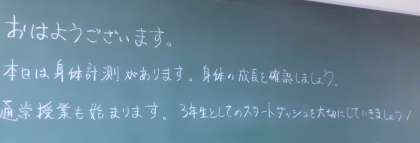 おはようございます。
本日は身体計測があります。身体の成長を確認しましょう。
通常授業も始まります。3年生としてのスタートダッシュを大切にしていきましょう!